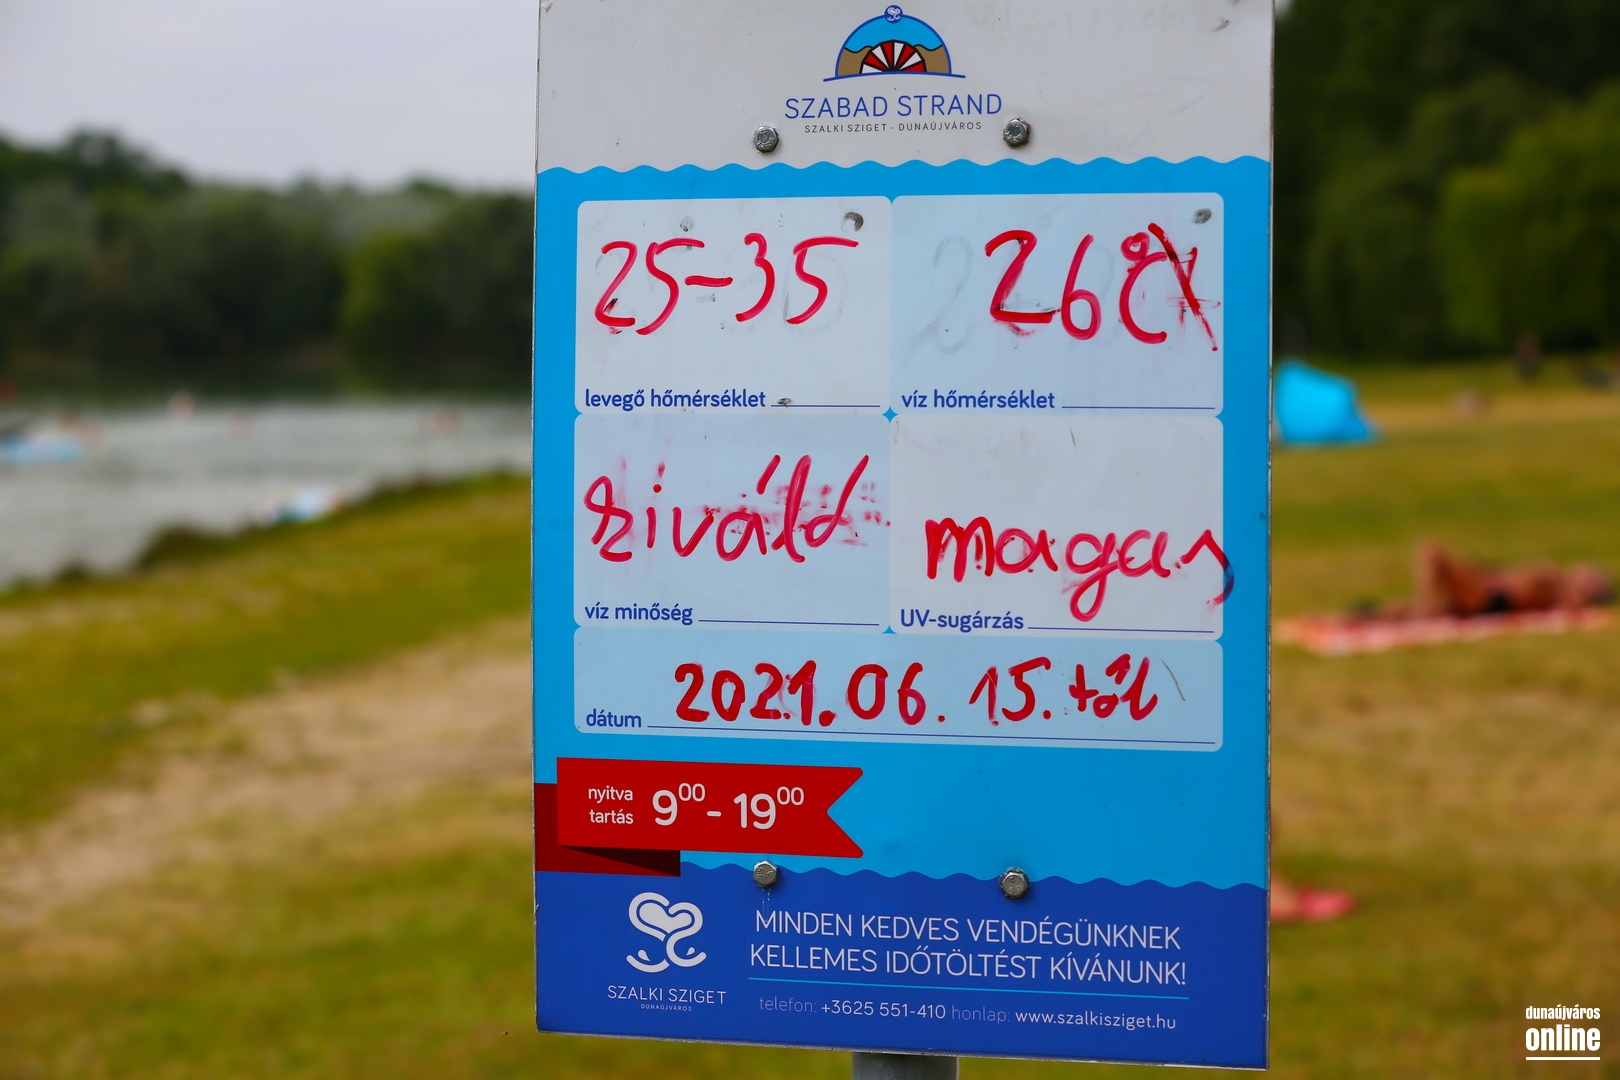 SZABAD STRAND
SZALKI SZIGET - DUNAÚJVÁROS
25-35
levegő hőmérséklet
26°C
víz hőmérséklet
kiváló
víz minőség
magas
UV-sugárzás
2021.06.15.től
dátum
nyitva
tartás
9⁰⁰ - 19⁰⁰
MINDEN KEDVES VENDÉGÜNKNEK
KELLEMES IDŐTÖLTÉST KÍVÁNUNK!
SZALKI SZIGET
DUNAÚJVÁROS
telefon: +3625 551-410 honlap: www.szalkisziget.hu
dunaújváros
online